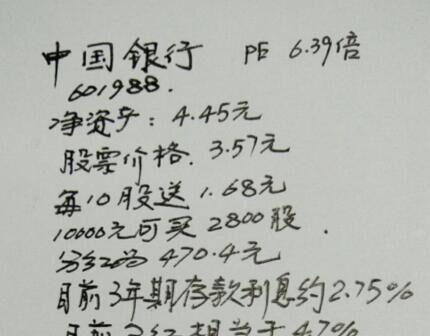 中国银行 PE 6.39倍
601988.
净资产: 4.45元
股票价格. 3.57元
每10股送 1.68元
10000元可买 2800股.
分红为 470.4元
目前3年期存款利息约2.75%
目前分红相当于4.7%